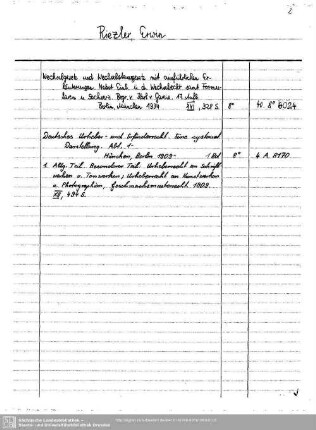 2
Riezler, Erwin
Wechselgesetz und Wechselsteuergesetz mit ausführlichen Er-
läuterungen. Nebst Einl. u. d. Wechselrecht und Formu-
laren u. Sachverz. Begr. v.
Berlin, München 1934 XVI, 328 S. 8° 40. 8° 6024
Deutsches Urheber- und Erfinderrecht. Eine systemat
Darstellung. Abt. 1-
München, Berlin 1909- 1 Bd 8° 4 A 8170
1. Allg. Teil. Besonderer Teil. Urheberrecht an Schrift
werken u. Tonwerken; Urheberrecht an Kunstwerken
u. Photographien, Geschmacksmusterrecht. 1909.
XII, 494 S.
Sächsische Landesbibliothek -
Staats- und Universitätsbibliothek Dresden